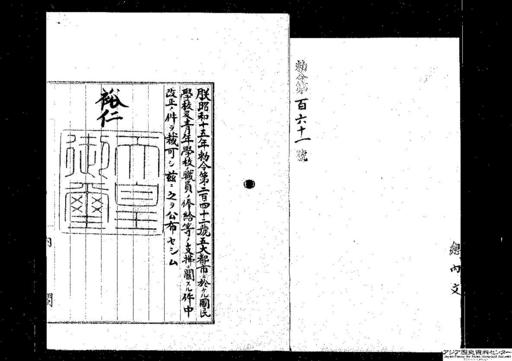 勅令第百六十一號
總內文
朕昭和十五年勅令第二百四十二號五大都市ニ於ケル國民
學校及青年學校職員ノ俸給等ノ支辨ニ關スル件中
改正ノ件ヲ裁可シ茲ニ之ヲ公布セシム
裕仁
天皇
御璽
內閣
アジア歴史資料センター